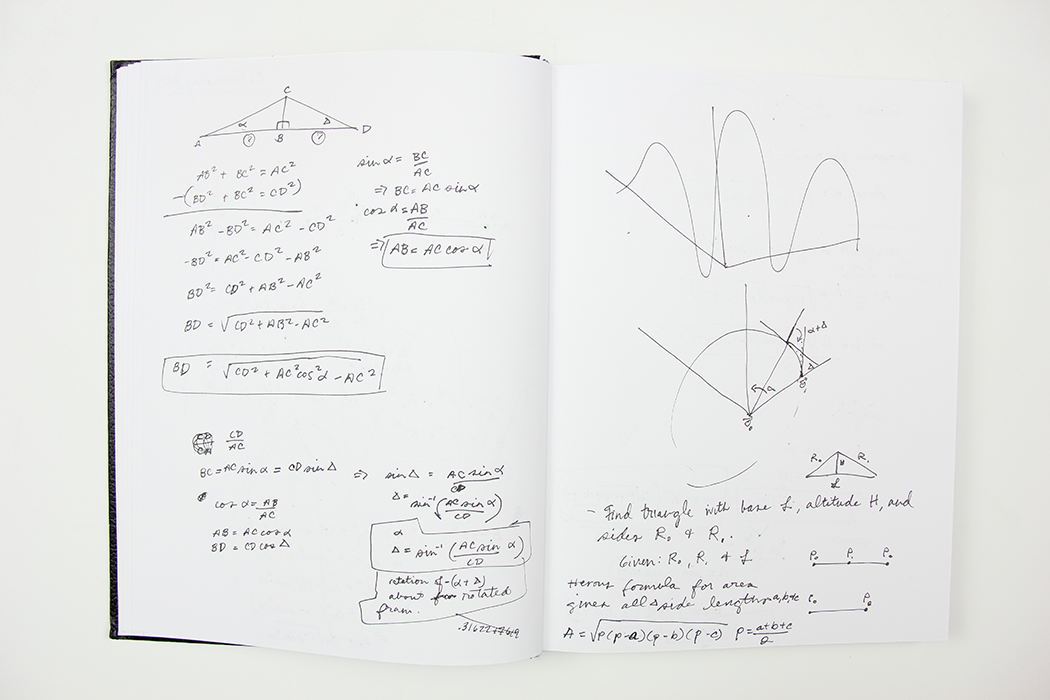 C
α Δ
A B D
? ?
AB² + BC² = AC²
-(BD² + BC² = CD²)
AB² - BD² = AC² - CD²
-BD² = AC² - CD² - AB²
BD² = CD² + AB² - AC²
BD = √CD² + AB² - AC²
BD = √CD² + AC²cos²α - AC²
sin α = BC/AC
⇒ BC = AC sin α
cos α = AB/AC
⇒ AB = AC cos α
CD/AC
BC = AC sin α = CD sin Δ ⇒ sin Δ = AC sin α/CD
Δ = sin⁻¹(AC sin α/CD)
cos α = AB/AC
AB = AC cos α
BD = CD cos Δ
α
Δ = sin⁻¹(AC sin α/CD)
rotation of -(α + Δ)
about rotated
fram.
.31622
α + Δ
Δ
α
R₀ H R₁
L
- Find triangle with base L, altitude H, and
sides R₀ & R₁.
Given: R₀, R₁ & L
P₀ P₁ P₂
Herons formula for area
given all Δ side lengths a, b, & c
A = √p(p-a)(p-b)(p-c) p = a+b+c/2